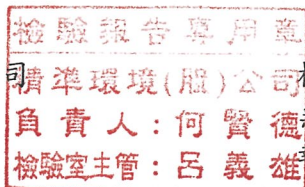 檢驗報告專用章
精準環境(股)公司
負責人:何賢德
檢驗室主管:呂義雄